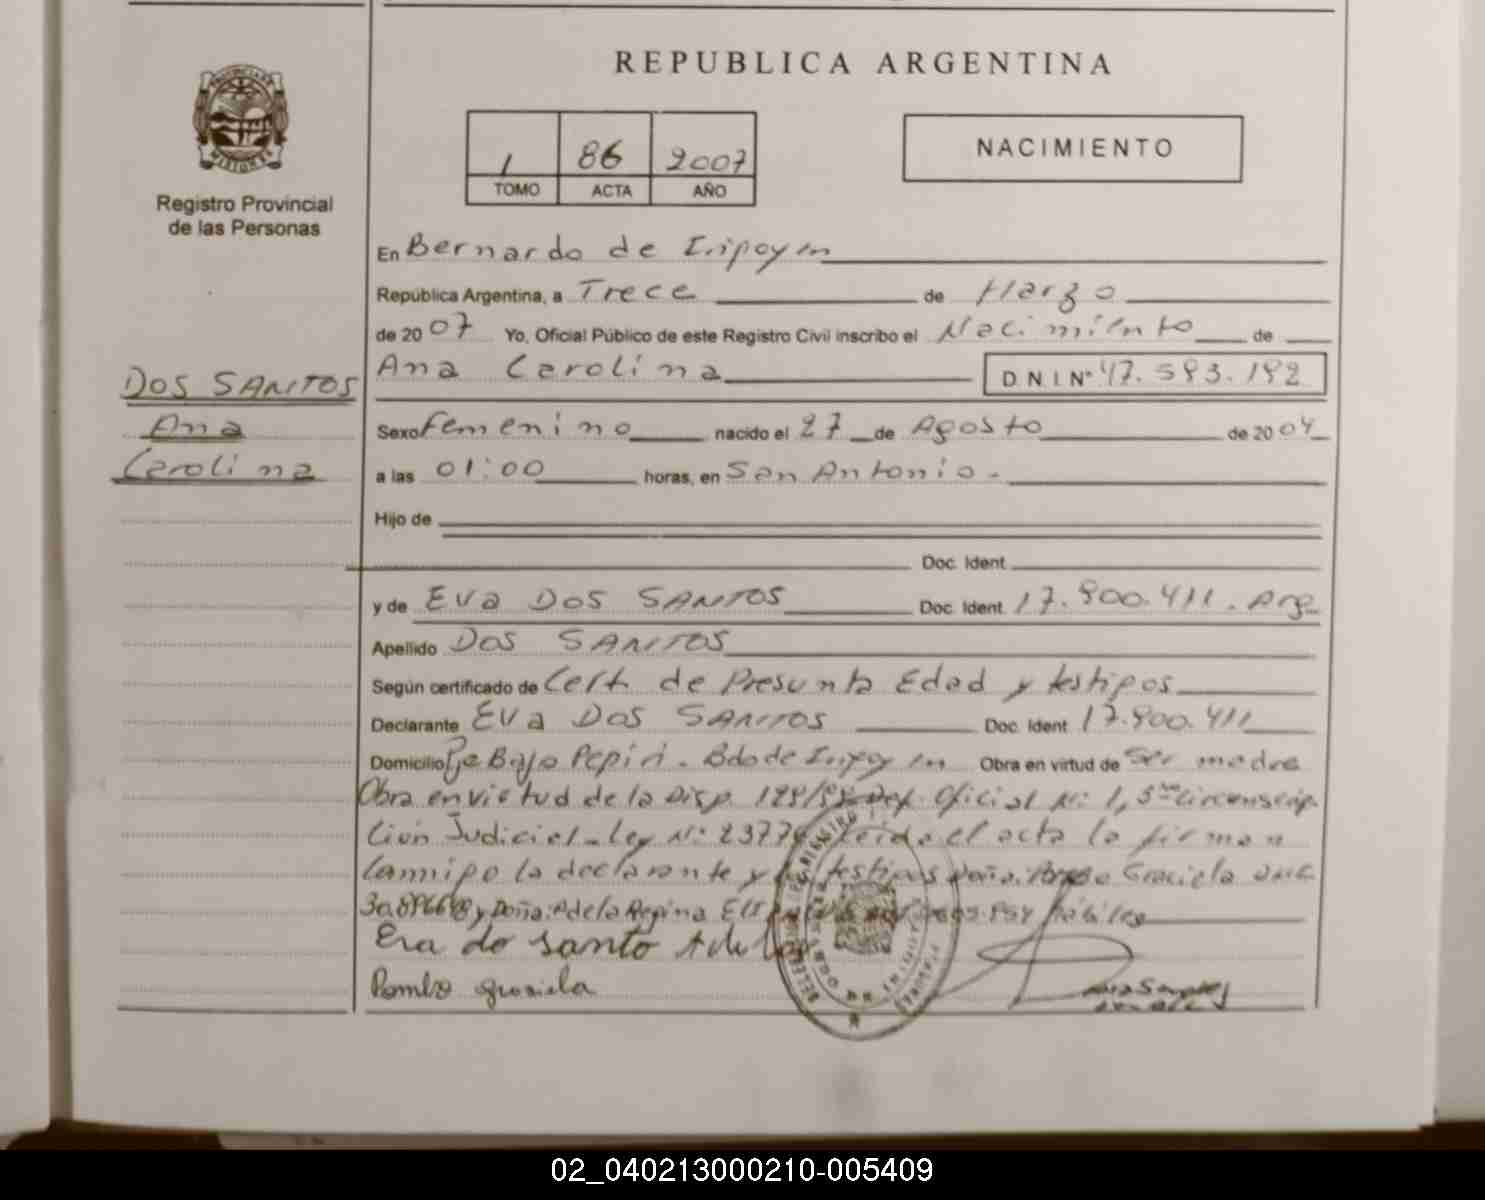 REPUBLICA ARGENTINA
PROVINCIA DE MISIONES
Registro Provincial
de las Personas
1 86 2007
TOMO ACTA AÑO
NACIMIENTO
En Bernardo de Irigoyen
República Argentina, a Trece de Marzo
de 2007 Yo, Oficial Público de este Registro Civil inscribo el Nacimiento de
Ana Carolina D.N.I Nº 47.583.182
DOS SANTOS
Ana
Carolina
Sexo Femenino nacido el 27 de Agosto de 2004
a las 01:00 horas, en San Antonio.-
Hijo de
Doc. Ident
y de Eva DOS SANTOS Doc. Ident 17.900.411. Arg
Apellido DOS SANTOS
Según certificado de Cert. de Presunta Edad y testigos
Declarante Eva DOS SANTOS Doc. Ident 17.900.411
Domicilio Pje Bajo Pepiri. Bdo de Irigoyen Obra en virtud de Ser madre
Obra en virtud de la Disp. Def. Oficial Nº: 1, 3ra Circunscrip
ción Judicial - Ley Nº: Leida el acta la firman
conmigo la declarante y los testigos Doña: Graciela
y Doña: Adela Regina hábiles
Eva do Santo
Graciela
02_040213000210-005409